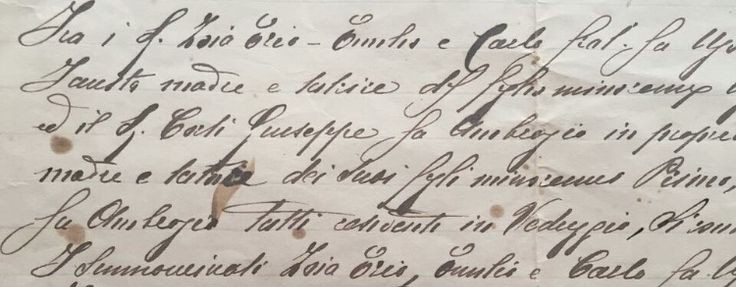 Tra i S. Zoia Ezio - Emilio e Carlo frat. fu
Fausta madre e tutrice del figlio minorenne
ed il S. Corti Giuseppe fu Ambrogio in propri
madre e tutrice dei suoi figli minorenni Primo,
fu Ambrogio tutti residenti in Vedeggio,
I summovinati Zoia Ezio, Emilio e Carlo fu